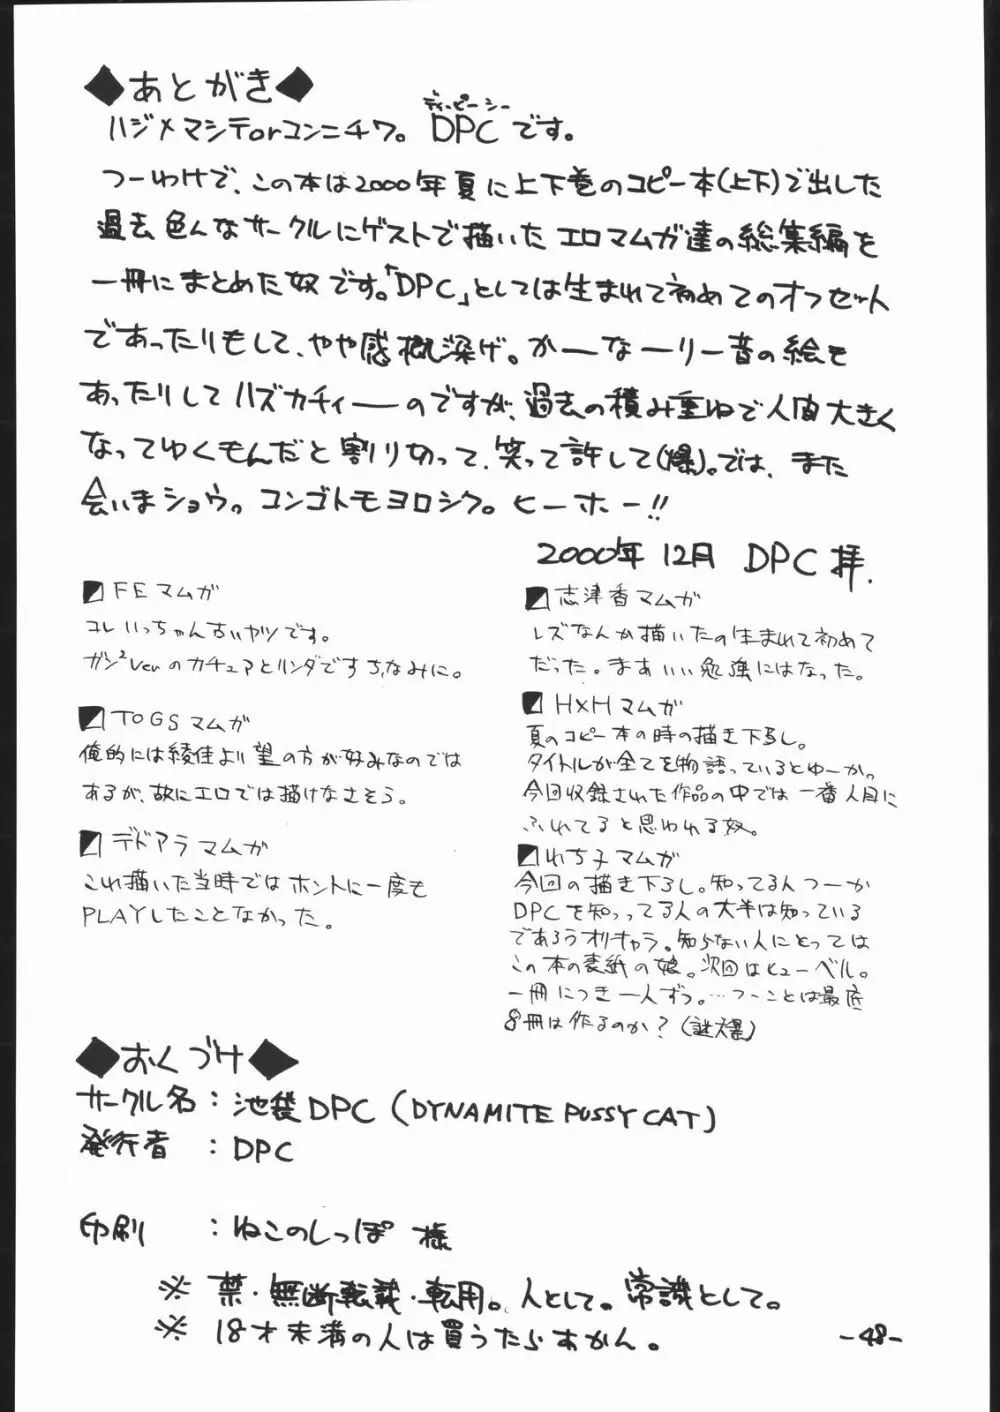 ◆あとがき◆
ディーピーシー
ハジメマシテorコンニチワ。DPCです。
つーわけで、この本は2000年夏に上下巻のコピー本(上下)で出した
過去色んなサークルにゲストで描いたエロマムガ達の総集編を
一冊にまとめた奴です。「DPC」としては生まれて初めてのオフセット
であったりもして、やや感慨深げ。かーなーりー昔の絵も
あったりしてハズカチィーのですが、過去の積み重ねで人間大きく
なってゆくもんだと割り切って、笑って許して(爆)。では、また
会いまショウ。コンゴトモヨロシク。ヒーホー!!
2000年12月 DPC拝.
FEマムガ
コレいっちゃん古いヤツです。
ガン²Verのカチュアとリンダですちなみに。
TOGSマムガ
俺的には綾佳より望の方が好みなのでは
あるが、故にエロでは描けなさそう。
デドアラマムガ
これ描いた当時ではホントに一度も
PLAYしたことなかった。
志津香マムガ
レズなんか描いたの生まれて初めて
だった。まあいい勉強にはなった。
H×Hマムガ
夏のコピー本の時の描き下ろし。
タイトルが全てを物語っているとゆーか。
今回収録された作品の中では一番人目に
ふれてると思われる奴。
れち子マムガ
今回の描き下ろし。知ってる人つーか
DPCを知ってる人の大半は知っている
であろうオリキャラ。知らない人にとっては
この本の表紙の娘。次回はヒューベル。
一冊につき一人ずつ。…つーことは最底
8冊は作るのか?(謎爆)
◆おくづけ◆
サークル名：池袋DPC(DYNAMITE PUSSY CAT)
発行者：DPC
印刷：ねこのしっぽ 様
※ 禁・無断転載・転用。人として。常識として。
※ 18才未満の人は買うたらあかん。
-48-